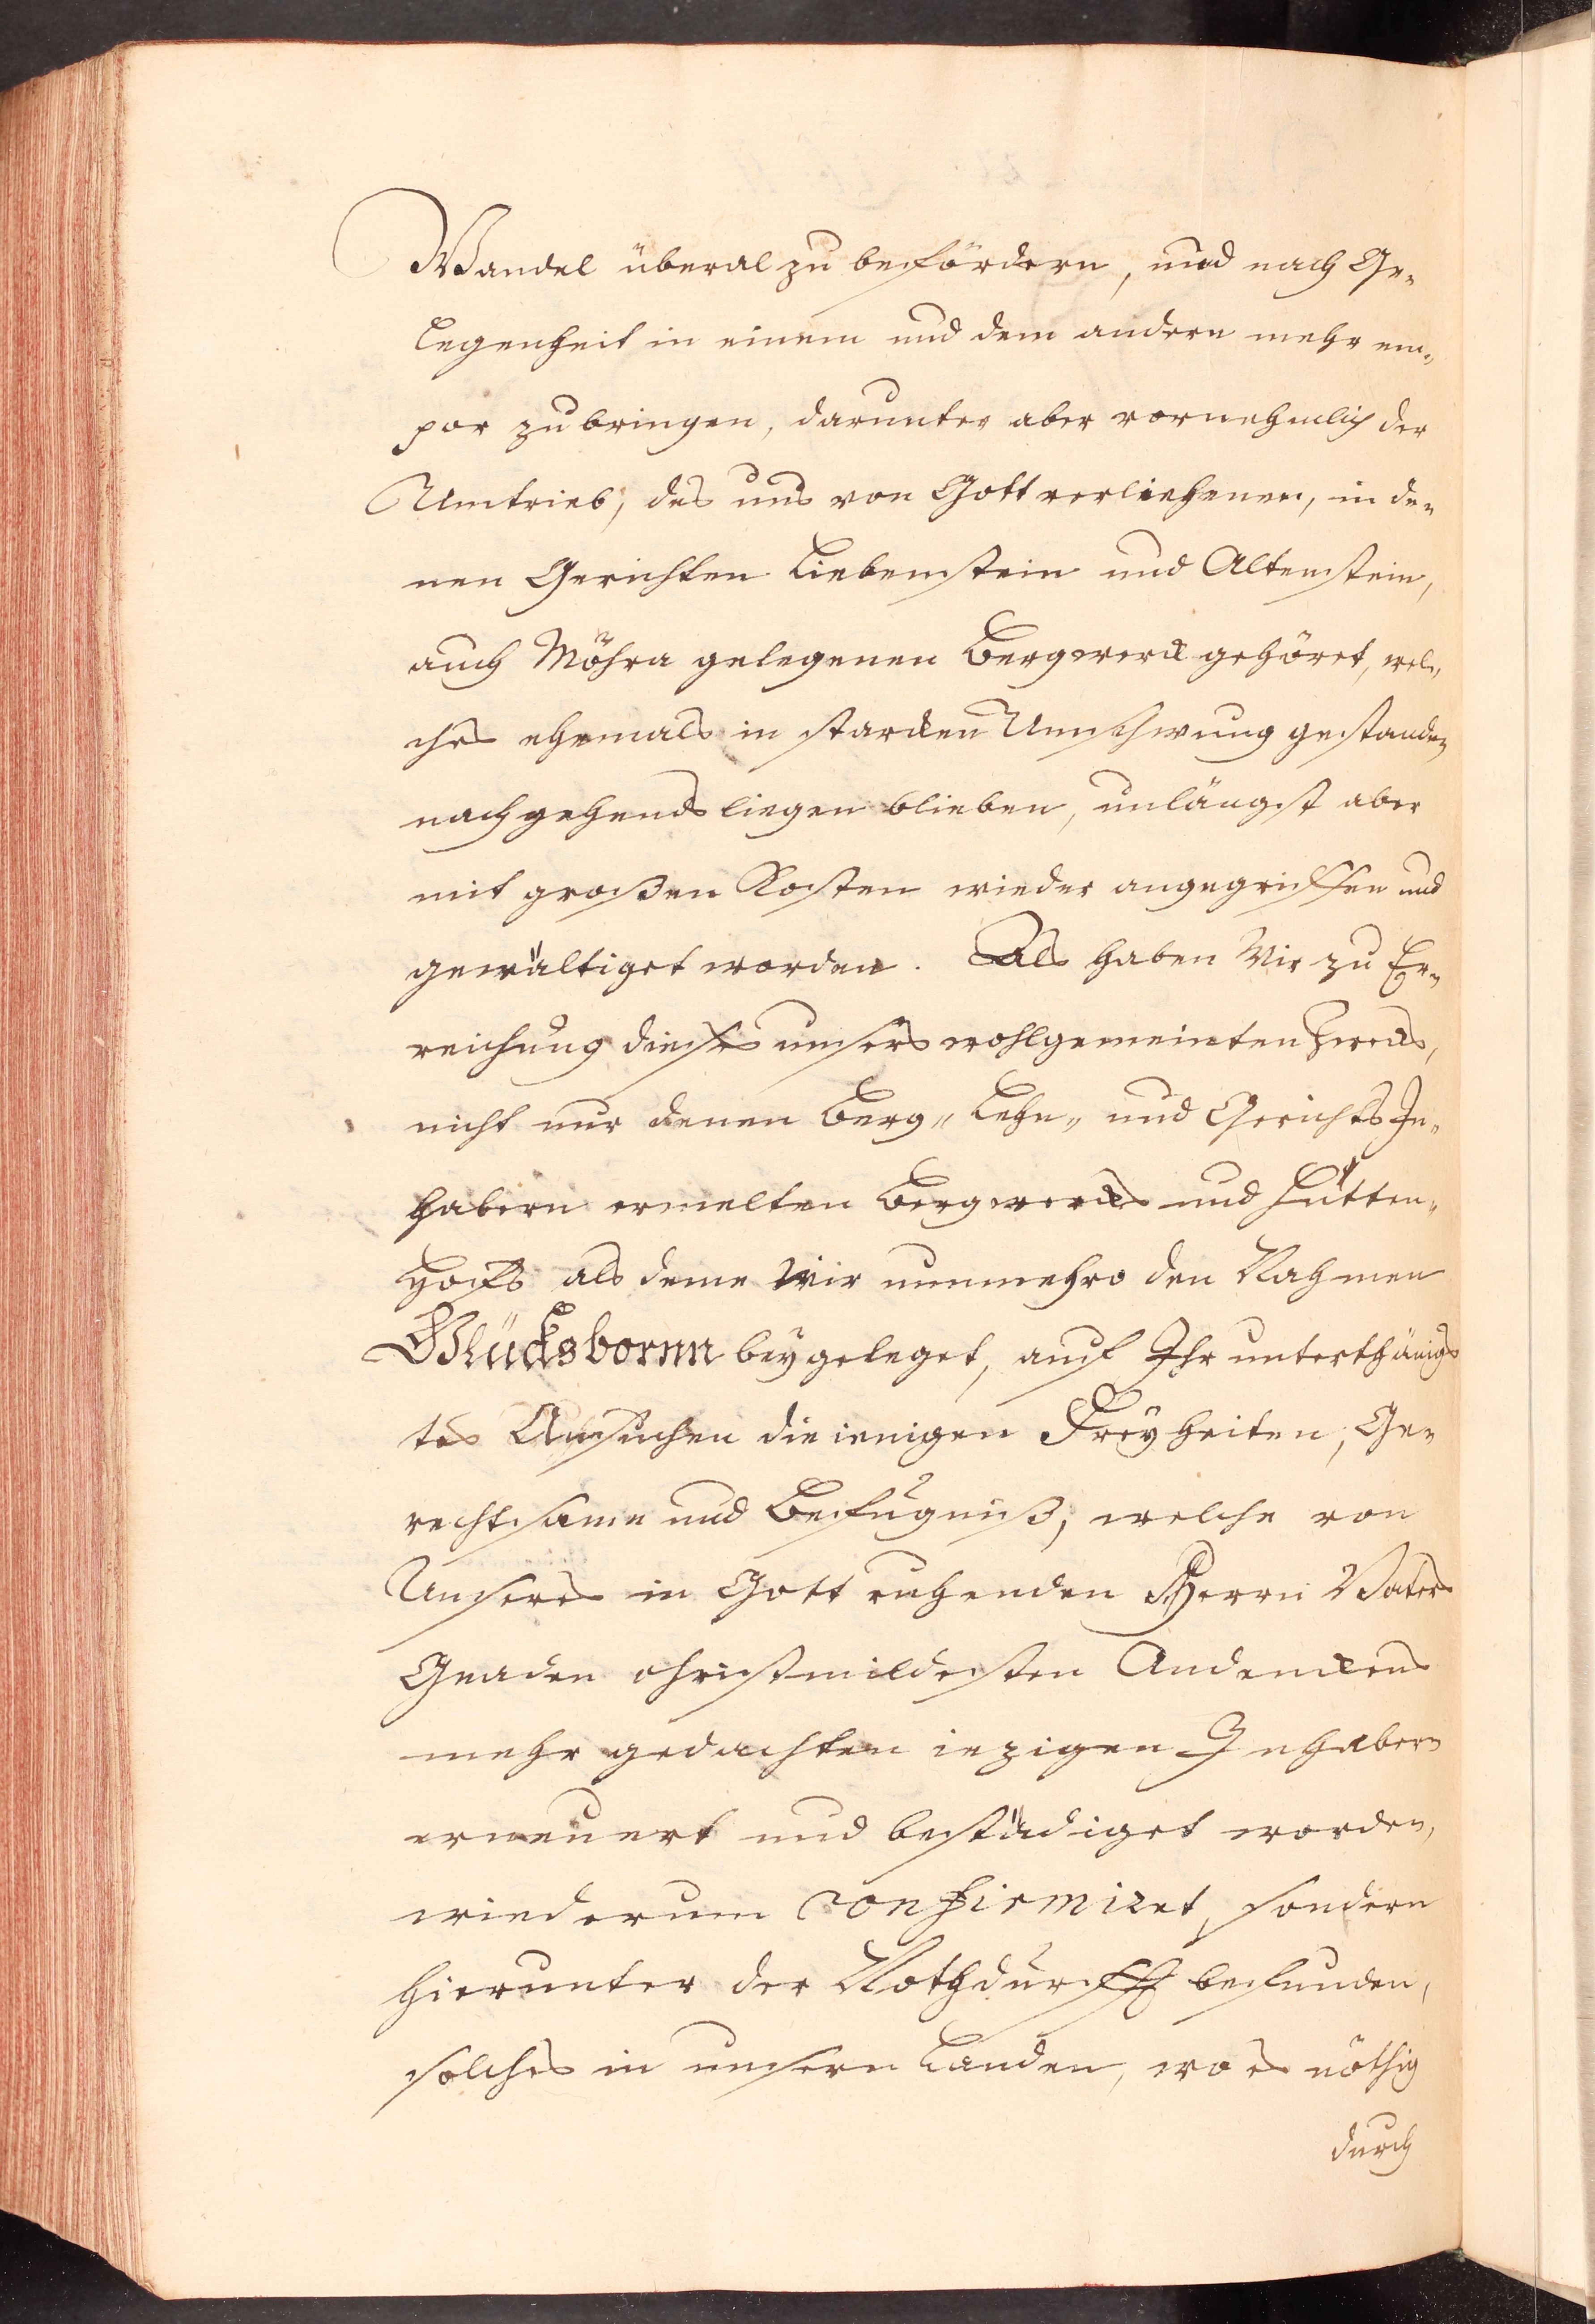 Wandel überal zu befördern, und nach Ge-
legenheit in einem und dem andern mehr em-
por zu bringen, darunter aber vornehmlich der
Umtrieb, des uns von Gott verliehenen, in de-
nen Gerichten Liebenstein und Altenstein,
auch Möhra gelegenen Bergwerck gehöret, wel-
ches ehemals in starcken Umschwung gestanden
nachgehends liegen blieben, unlängst aber
mit großen Kosten wieder angegriffen und
gewältiget worden. Als haben Wir zu Er-
reichung dieses unsers wohlgemeinten Zwecks,
nicht nur denen Berg- Lehn- und Gerichts In-
habern ermelten Bergwercks und Hütten-
Hoffs als deme Wir nunmehro den Nahmen
Glücksbornn beygeleget, auf Ihr unterthänigs
tes Ansuchen die ienigen Freyheiten, Ge-
rechtsame und Befugniß, welche von
Unsers in Gott ruhenden Herrn Vaters
Gnaden christmildesten Andenckens
mehr gedachten iezigen Inhabern
erneuert und bestädiget worden,
wiederum confirmiret, sondern
hierunter der Nothdurfft befunden,
solches in unsern Landen, wo es nöthig
durch